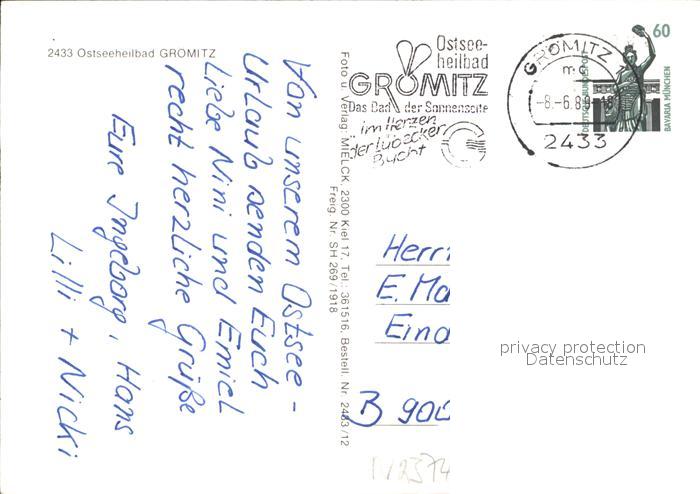 2433 Ostseeheilbad GRÖMITZ
Von unserem Ostsee-
Urlaub senden Euch
Liebe Nini und Emiel
recht herzliche Grüße
Eure Ingeborg, Hans
Lilli + Nicki
Foto u. Verlag: MIELCK, 2300 Kiel 17, Tel.: 361516, Bestell. Nr. 2433/12
Freig. Nr. SH 269/1918
Ostsee-
heilbad
GRÖMITZ
Das Bad der Sonnenseite
im Herzen
der Lübecker
Bucht
GRÖMITZ 1
-8.-6.89-18
2433
60
DEUTSCHE BUNDESPOST
BAVARIA MÜNCHEN
Herrn
E. Ma
Eind
B 900
privacy protection
Datenschutz